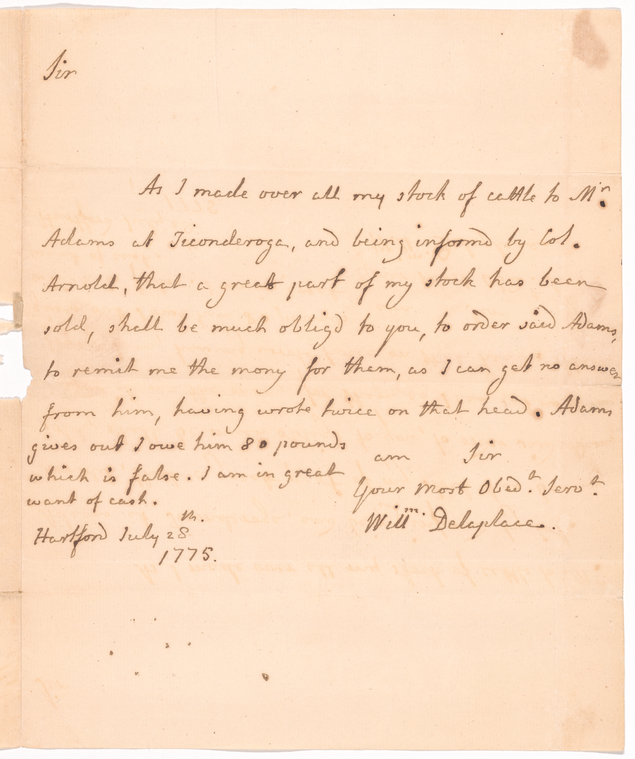 Sir
As I made over all my stock of cattle to Mr.
Adams at Ticonderoga, and being informd by Col.
Arnold, that a great part of my stock has been
sold, shall be much obligd to you, to order said Adams,
to remit me the mony for them, as I can get no answer
from him, having wrote twice on that head. Adams
gives out I owe him 80 pounds
which is false. I am in great
want of cash.
am Sir
Your most Obedt. Servt.
Willm. Delaplace.
Hartford July 28th.
1775.